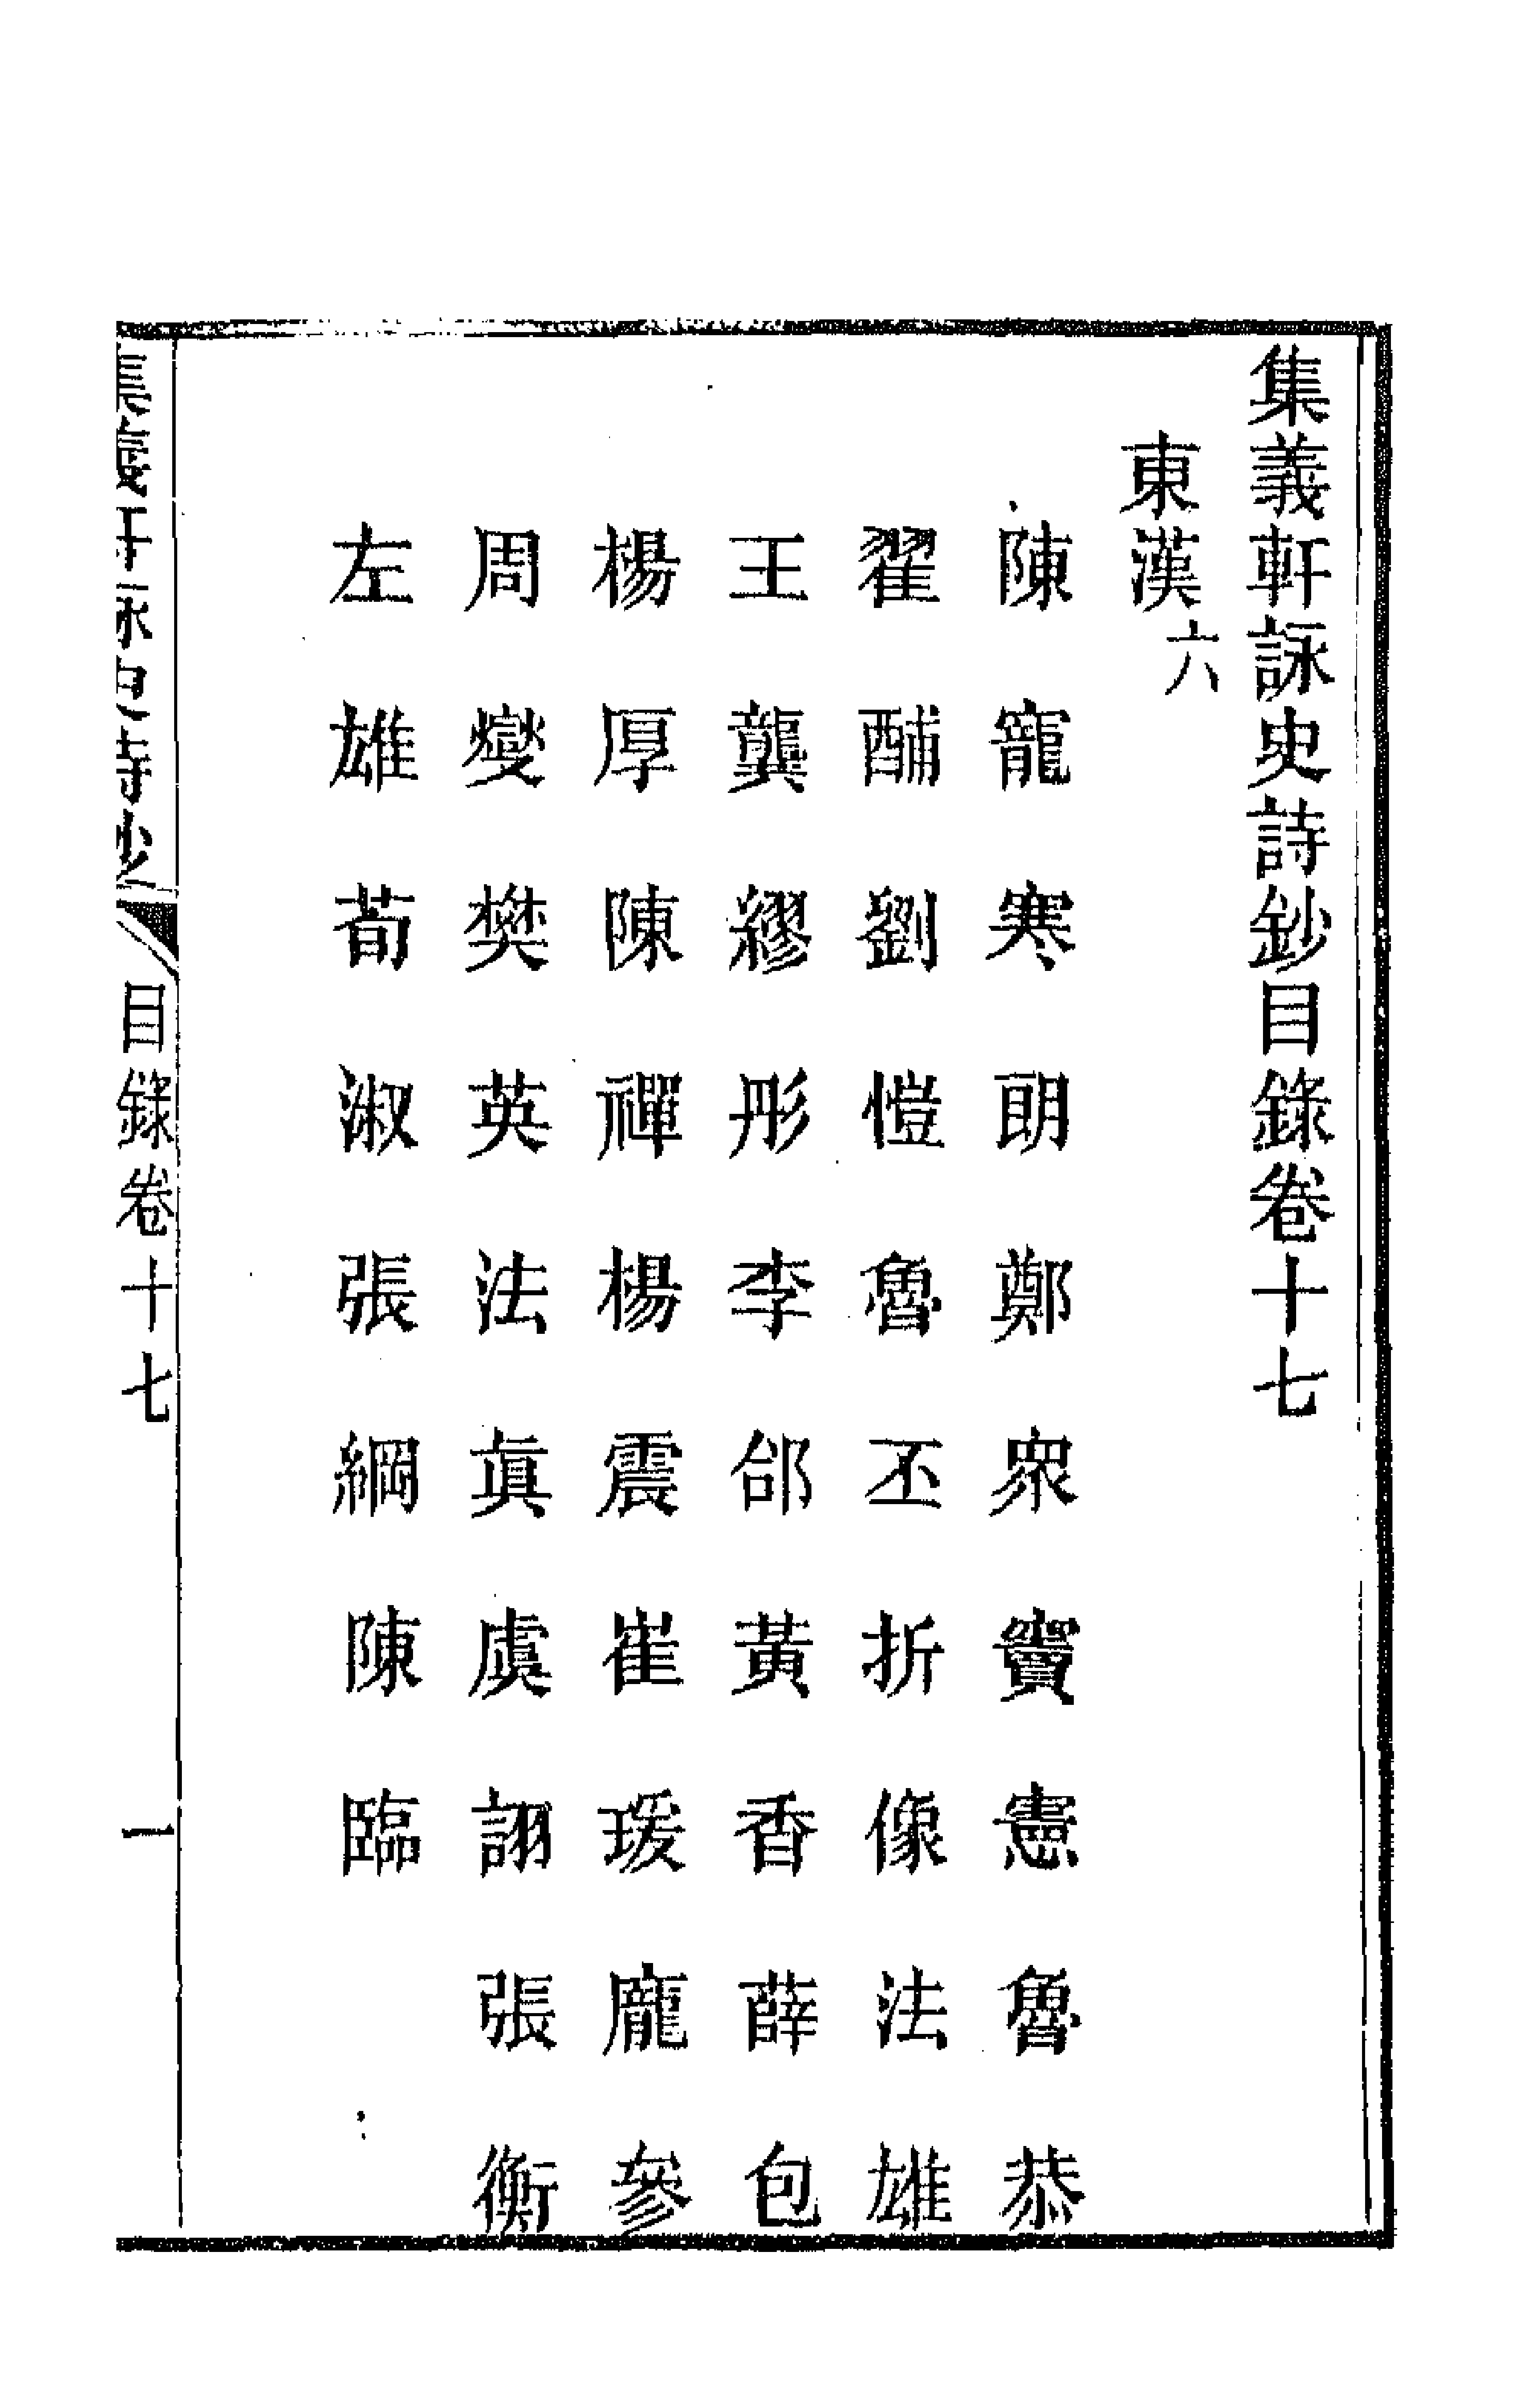 集義軒詠史詩鈔目錄卷十七
東漢六
陳寵 寒朗 鄭衆 竇憲 魯恭
翟酺 劉愷 魯丕 折像 法雄
王龔 繆彤 李郃 黃香 薛包
楊厚 陳禪 楊震 崔瑗 龐參
周燮 樊英 法真 虞詡 張衡
左雄 荀淑 張綱 陳臨
集義軒詠史詩鈔 目錄卷十七 一